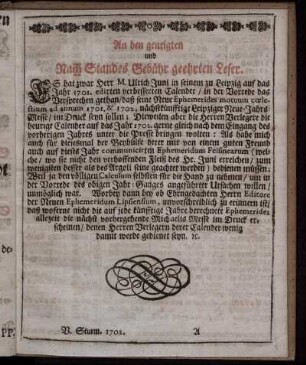 An den geneigten
und
Nach Standes Gebühr geehrten Leser.
ES hat zwar Herr M. Ulrich Juni in seinem zu Leipzig auf das
Jahr 1701. edirten verbesserten Calender / in der Vorrede das
Versprechen gethan/daß seine Neue Ephemerides motuum cœle-
stium ad annum 1701. & 1702. nächstkünfftige Leipziger Neu-Jahrs-
Messe / im Druck seyn sollen: Dieweilen aber die Herren Verlegere die
heurige Calender auf das Jahr 1702. gerne gleich nach dem Eingang des
vorherigen Jahrs unter die Presse bringen wollen: Als habe mich
auch für diesesmal der Beyhülffe derer mir von einem guten Freund
auch auf dieses Jahr communicirten Ephemeridum (wel-
che / wo sie nicht den verhoffenden Fleiß des Hr. Juni erreichen / zum
wenigsten besser als des Argoli seine geachtet werden) bedienen müssen:
Weil zu den völligen Calculum selbsten für die Hand zu nehmen / mir in
der Vorrede des obigen Jahr-Ganges angeführter Ursachen wollen /
unmöglich war. Worbey dann bey ob Ehrngedachten Herrn Editore
der Neuen Ephemeridum Lipsiensium, unvorschreiblich zu erinnern ist /
daß woferne nicht die auf jede künfftige Jahre berechnete Ephemerides
allezeit die nächst vorhergehende Michaelis Messe im Druck er-
scheinen / denen Herren Verlegern derer Calender wenig
damit werde gedienet seyn. ꝛc.
V. Sturm. 1702. A